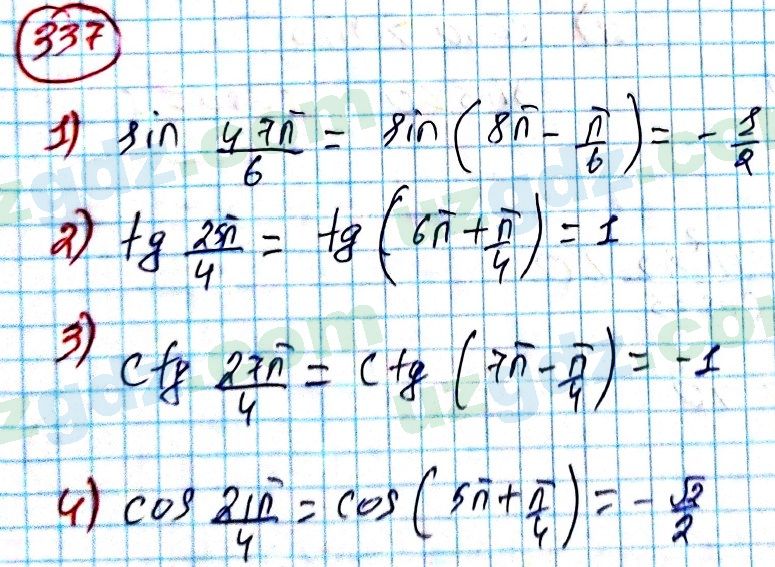 337
1) sin 47π/6 = sin (8π - π/6) = - 1/2
2) tg 25π/4 = tg (6π + π/4) = 1
3) ctg 27π/4 = ctg (7π - π/4) = -1
4) cos 21π/4 = cos (5π + π/4) = - √2/2
uzgdz.com
uzgdz.com
uzgdz.com
uzgdz.com